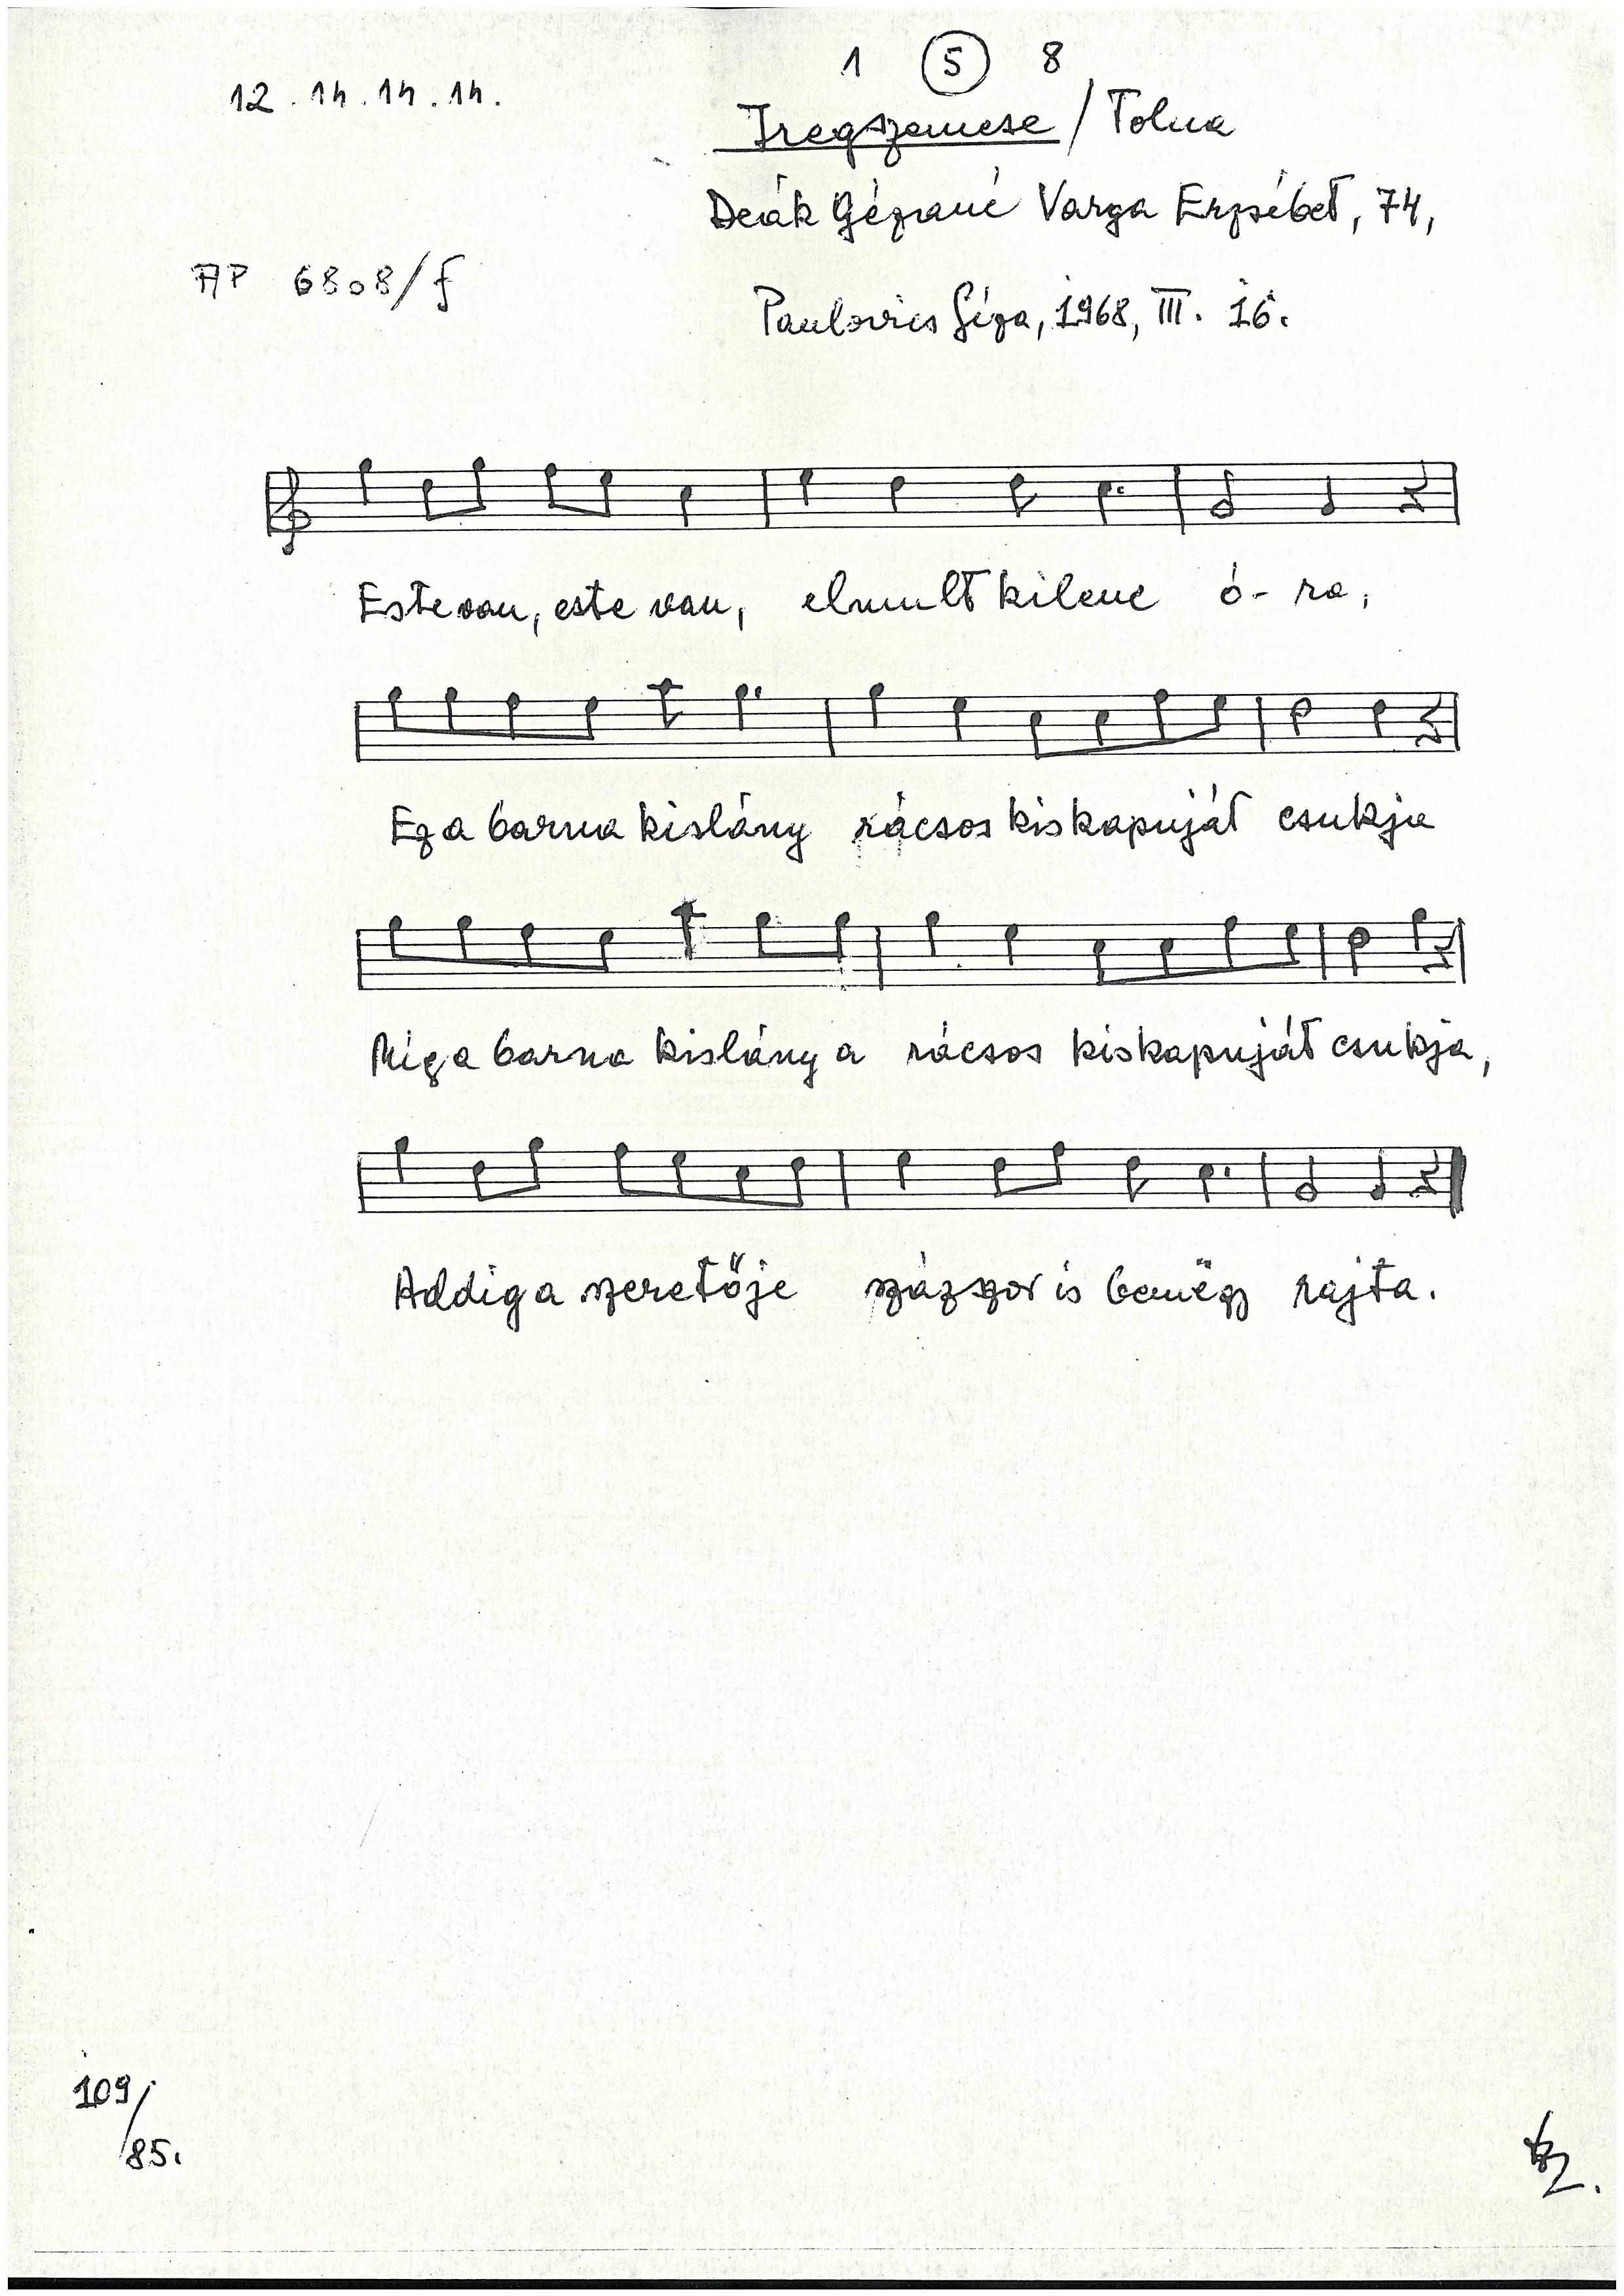 1 5 8
12.14.14.14.
Iregszemcse / Tolna
Deák Gézáné Varga Erzsébet, 74,
AP 6808/f
Paulovics Géza, 1968, III. 16.
Este van, este van, elmult kilenc ó-ra,
Ez a barna kislány rácsos kiskapuját csukja
Mig a barna kislány a rácsos kiskapuját csukja,
Addig a szeretője százszor is bemëgy rajta.
109/
85.